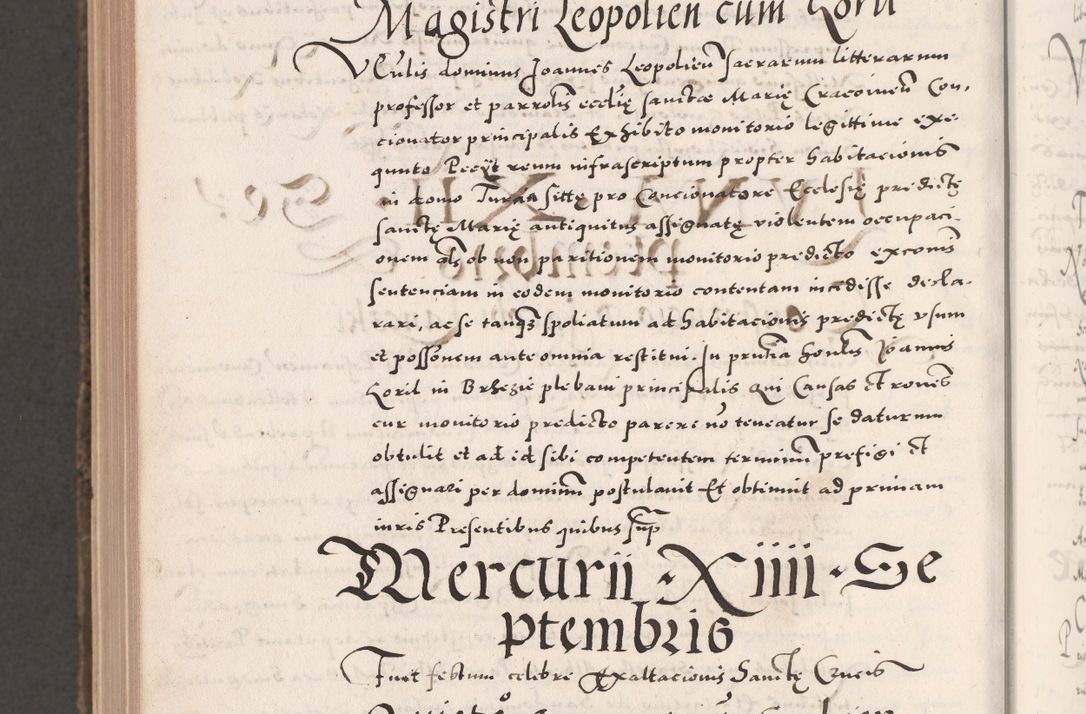 Magistri Leopolien cum Koril
VEnlis dominus Joannes Leopolien Sacrarum litterarum
professor et parrolis ecclię sanctæ Marię Cracovien Con,
cionator principalis Exhibito monitorio legittime exe-
quuto Peciit reum infrascriptum propter habitacionis
in domo Turcia sittę pro Concionatore Ecclesię predictę
sanctę Marię antiquitus assignatę violentem occupaci-
onem als ob non paritionem monitorio predicto excomis
sentenciam in eodem monitorio contentam incidisse decla-
rari, ac se tanqz spoliatum ad habitacionis predictę vsum
et possonem ante omnia restitui. In pruntia honlis Joannis
Koril in Brzezie plebani principalis Qui Causas et rones
cur monitorio predicto parere no teneatur se daturum
obtulit et ad id sibi competentem terminum prefigi et
assignari per dominum postulavit Et obtinuit ad primam
iuris Presentibus quibus sup
Mercurii · Xiiii · Se
ptembris
Fuit festum celebre Exaltacionis Sanctę Crucis